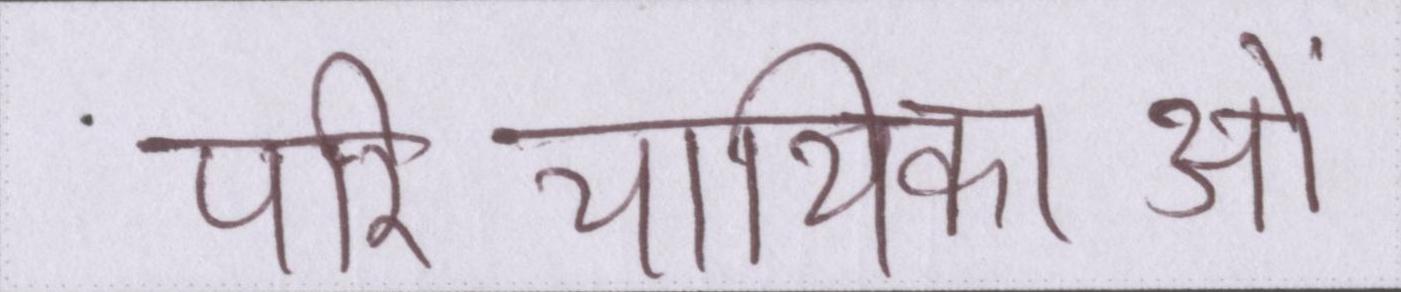 परि चायिका ओं